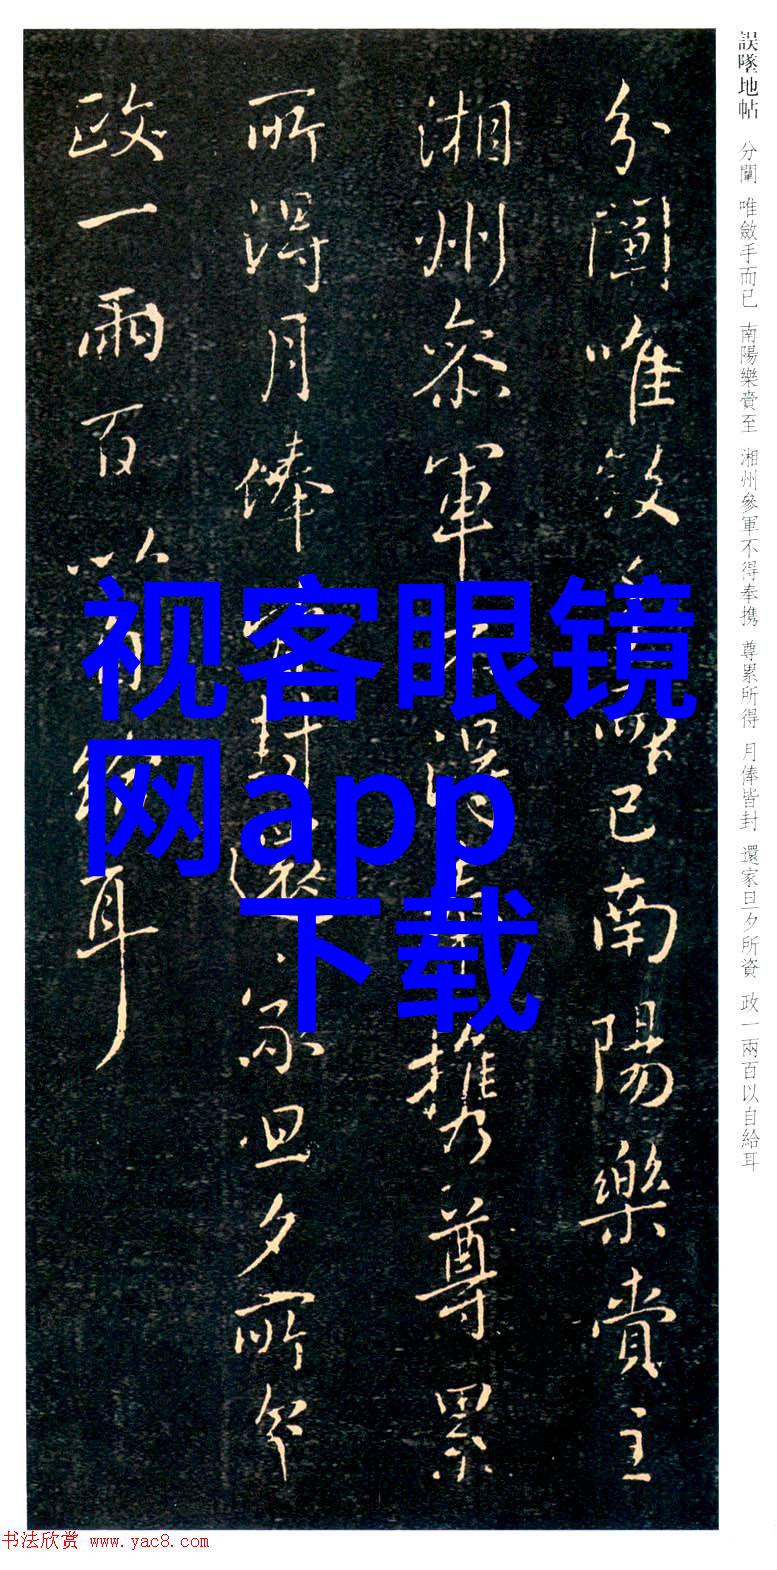 誤墜地帖 分闈 唯斂手而已 南陽樂賁至 湘州參軍不得奉携 尊累所得 月俸皆封 還家旦夕所資 政一兩百以自給耳
湘州參軍不得奉携尊累
所得月俸皆封還家旦夕所
政一兩百以自給耳
视客眼镜
网app
下载
书法欣赏 www.yac8.com